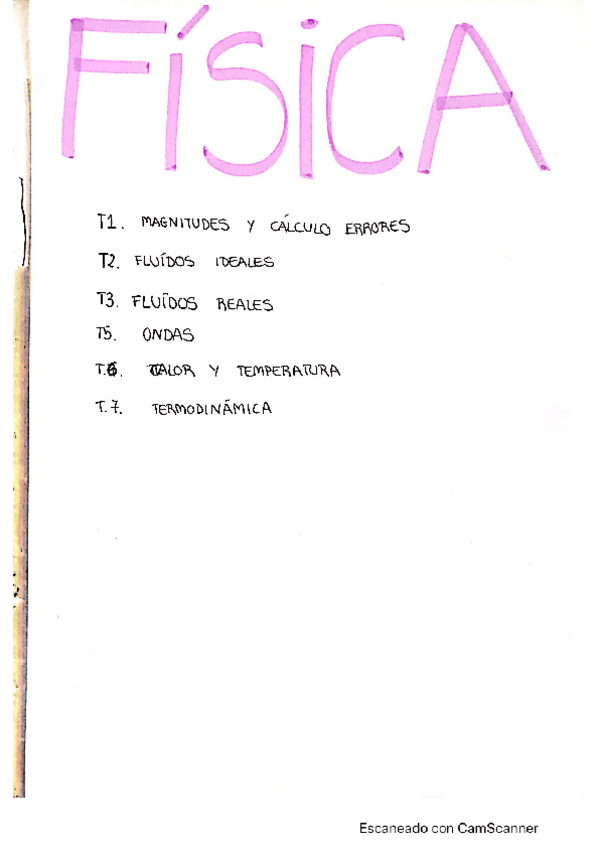 FÍSICA
T1. MAGNITUDES Y CÁLCULO ERRORES
T2. FLUÍDOS IDEALES
T3. FLUÍDOS REALES
T5. ONDAS
T.6. CALOR Y TEMPERATURA
T.7. TERMODINÁMICA
Escaneado con CamScanner